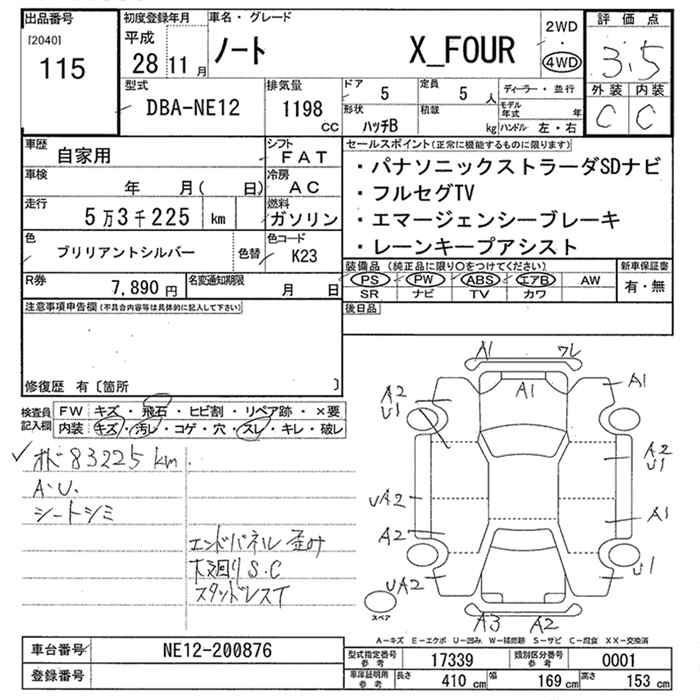 出品番号
[2040]
115
初度登録年月
平成
28 11 月
車名・グレード
ノート X_FOUR
2WD
・
4WD
評価点
3.5
外装 内装
C C
型式
DBA-NE12
排気量
1198
CC
ドア 5
定員 5 人
ディーラー・並行
形状 ハッチB
積載 kg
モデル年式 年
ハンドル 左・右
車歴 自家用
シフト FAT
車検 年 月( 日)
冷房 AC
走行 5万3千225 km
燃料 ガソリン
色 ブリリアントシルバー
色替
色コード K23
R券 7,890円
名変通知期限 月 日
セールスポイント(正常に機能するものに限ります)
・パナソニックストラーダSDナビ
・フルセグTV
・エマージェンシーブレーキ
・レーンキープアシスト
装備品 (純正品に限り○をつけてください)
新車保証書
PS PW ABS エアB AW
有・無
SR ナビ TV カワ
後日品
注意事項申告欄(不具合内容等は具体的に記入して下さい)
修復歴 有〔箇所 〕
検査員記入欄
FW キズ・飛石・ヒビ割・リペア跡・×要
内装 キズ・汚レ・コゲ・穴・スレ・キレ・破レ
83225 km
A.U.
シートシミ
エンドパネル 歪み
下廻り S.C
スタッドレスT
A1 ワレ
A2
U1
A1
A1
A2
U1
UA2
A2
A1
UA2
U1
A3 A2
スペア
A-キズ E-エクボ U-凹み W-補修跡 S-サビ C-腐食 XX-交換済
車台番号 NE12-200876
登録番号
型式指定番号参考 17339
類別区分番号参考 0001
車庫証明用参考 長さ 410 cm 幅 169 cm 高さ 153 cm